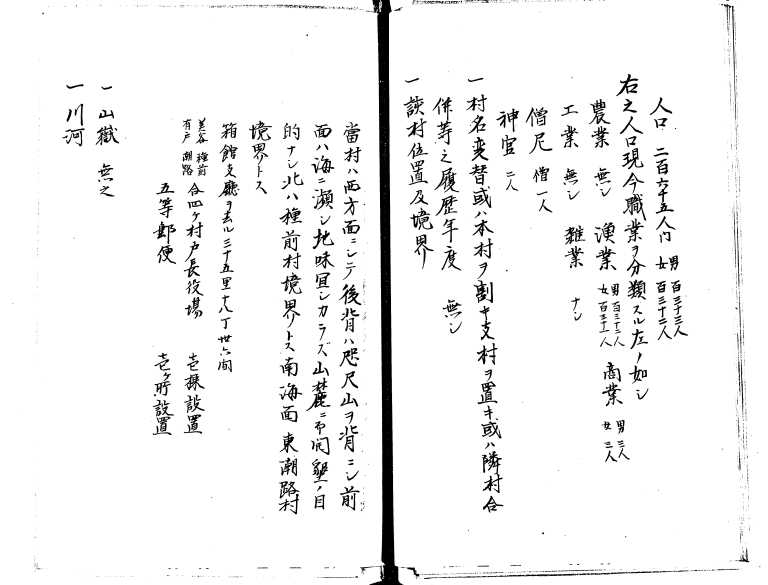 人口 二百六十五人内 男 百三十三人 女 百三十二人
右之人口現今職業ヲ分類スル左ノ如シ
農業 無シ 漁業 男百三十二人 女百三十一人 商業 男三人 女三人
工業 無シ 雑業 ナシ
僧尼 僧一人
神官 二人
一 村名変替或ハ本村ヲ割キ支村ヲ置キ或ハ隣村合
併等之履歴年度 無シ
一 該村位置及境界
當村ハ西方面ニシテ後背ハ咫尺山ヲ背ニシ前
面ハ海ニ瀕シ地味宜シカラズ山麓ニ開墾ノ目
的ナシ北ハ種前村境界トス南海面東潮路村
境界トス
箱館支廳ヲ去ル三十五里十八丁卅六間
美谷 種前 有戸 潮路 合四ケ村戸長役場 壱棟設置
五等郵便 壱ケ所設置
一 山嶽 無之
一 川河